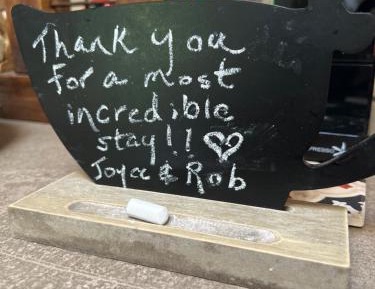 Thank you
for a most
incredible
stay!! ♡
Joyce & Rob